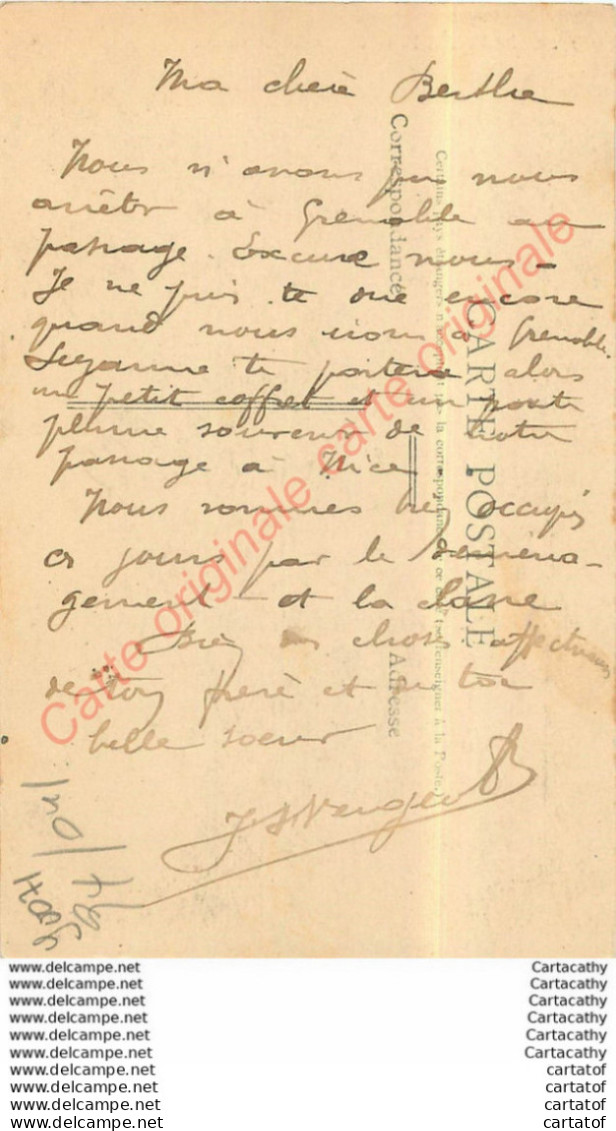 Ma chère Berthe
Nous n'avons pu nous
arrêter à Grenoble au
passage. Excuse nous -
Je ne puis te dire encore
quand nous irons à Grenoble.
Suzanne te portera alors
un petit coffret et un porte
plume souvenir de notre
passage à Nice.
Nous sommes très occupés
ces jours par le déména-
gement - et la classe
Bien des choses affectueuses
de ton frère et de ta
belle soeur
Correspondance
CARTE POSTALE
Adresse
Carte originale carte originale
www.delcampe.net Cartacathy
www.delcampe.net Cartacathy
www.delcampe.net Cartacathy
www.delcampe.net Cartacathy
www.delcampe.net Cartacathy
www.delcampe.net Cartacathy
www.delcampe.net cartatof
www.delcampe.net cartatof
www.delcampe.net cartatof
www.delcampe.net cartatof